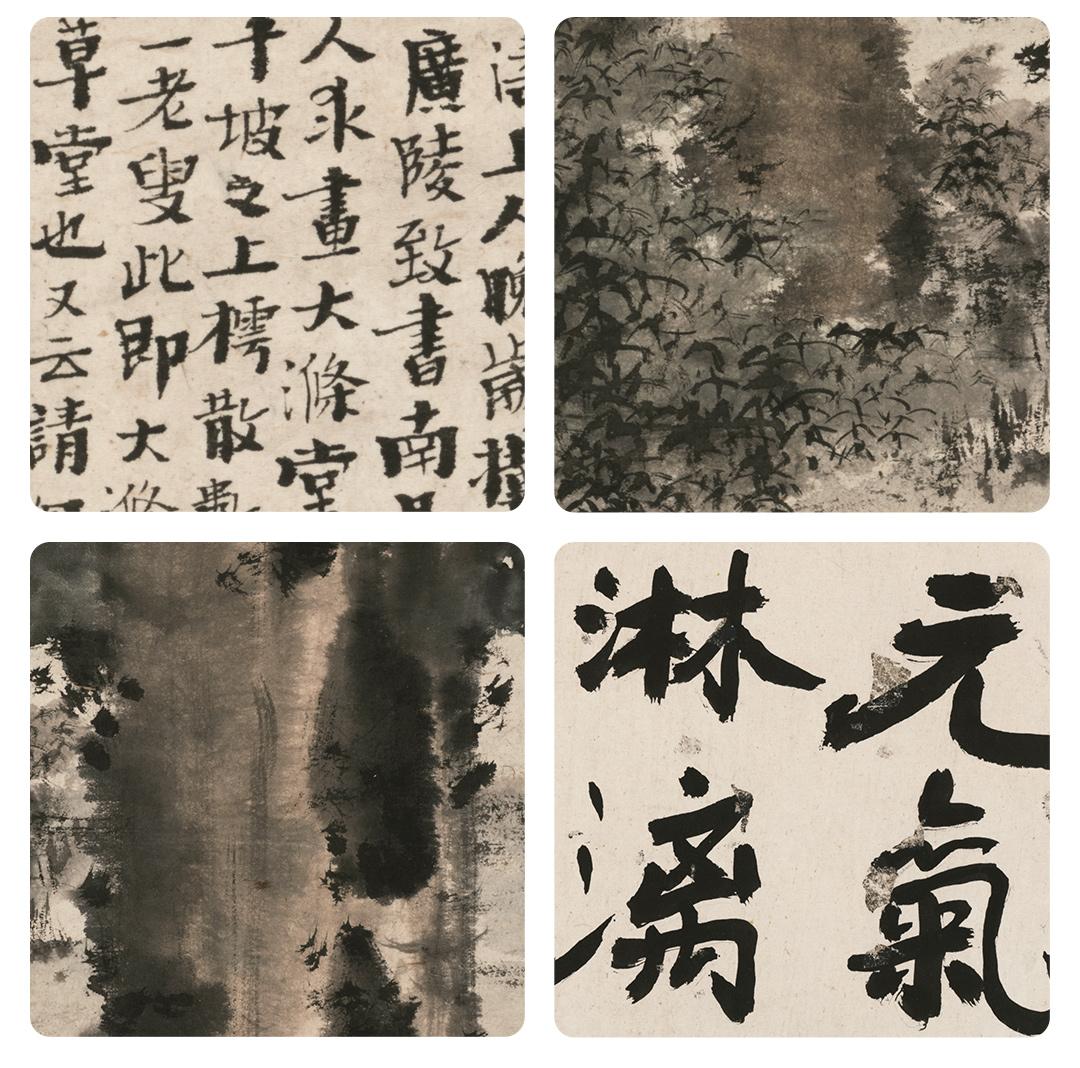 上人晚歲
廣陵致書南
人求畫大滌堂
平坡之上樗散數
一老叟此即大滌
草堂也又云請
元氣
淋漓